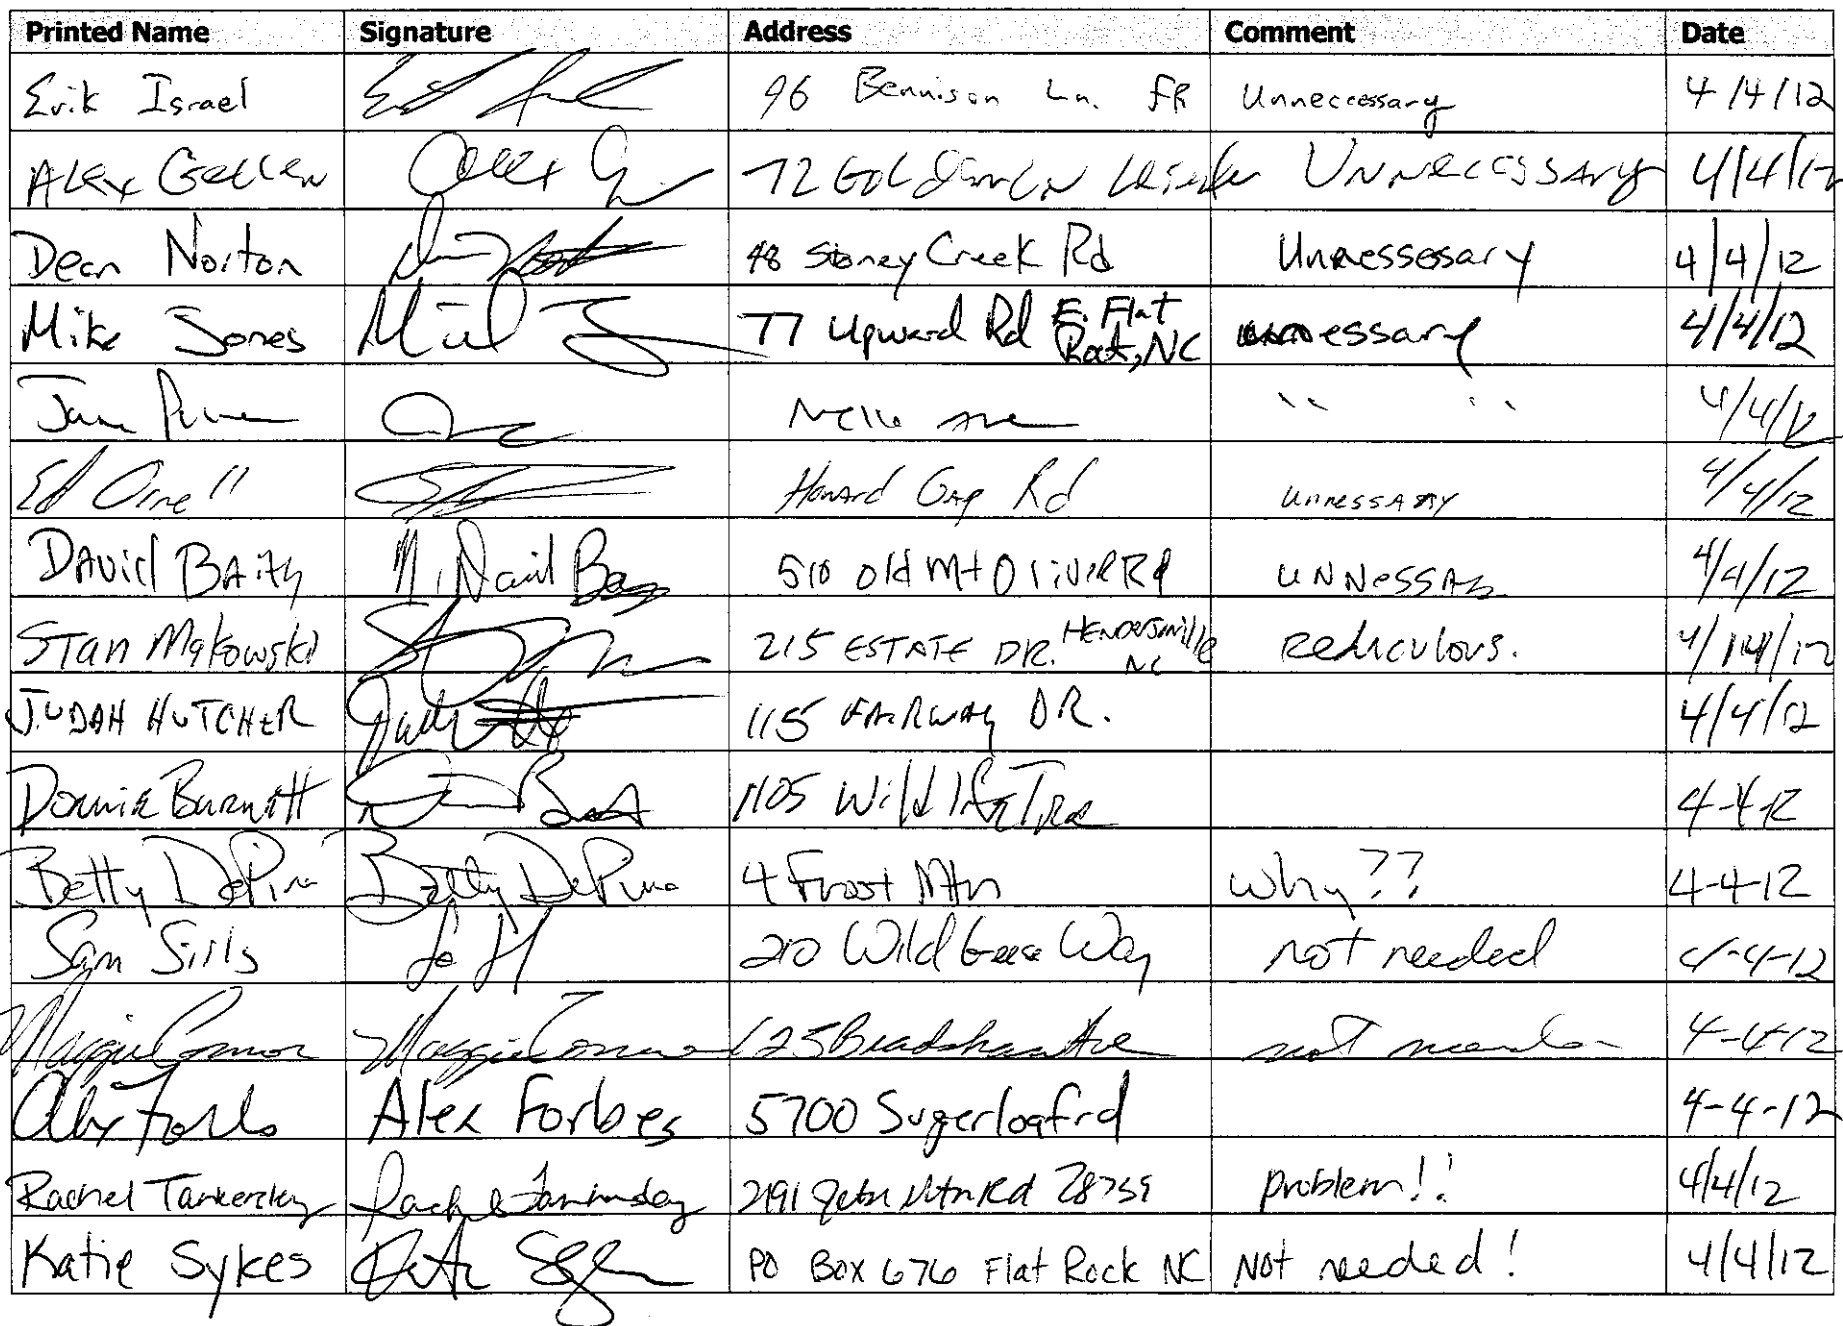 Printed Name Signature Address Comment Date
Erik Israel 96 Bennison Ln. FR Unneccessary 4/4/12
Alex 72 UNNECCSSARY 4/4/12
Dean Norton 48 Stoney Creek Rd Unnessessary 4/4/12
Mike Jones 77 Upward Rd E. Flat Rock, NC unnessary 4/4/12
Ave " " 4/4/12
Ed Howard Gap Rd unnessary 4/4/12
David Baity 510 Old Mt Olivet Rd 4/4/12
Stan Makowski 215 ESTATE DR. Hendersonville NC Rediculous. 4/14/12
JUDAH HUTCHER 115 FAIRWAY DR. 4/4/12
Donnie Burnett 1105 4-4-12
Betty DePina Betty DePina 4 Frost Mtn Why?? 4-4-12
Sam Sills 210 Wild Geese Way not needed 4-4-12
Maggie Connor Maggie Connor 125 Bradshaw Ave not 4-4-12
Alex Forbes Alex Forbes 5700 Sugerloaf rd 4-4-12
Rachel Tankersley Rachel Tankersley Mtn Rd problem!! 4/4/12
Katie Sykes PO Box 676 Flat Rock NC Not needed! 4/4/12